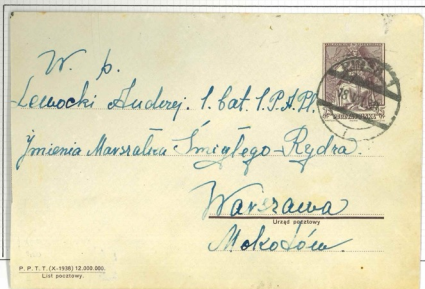 W. p.
Lewocki Andrzej. 1. bat. 1. P.A.Pl.
Imienia Marszałka Śmigłego-Rydza.
Warszawa
Urząd pocztowy
Mokotów.
P. P. T. T. (X-1938) 12.000.000.
List pocztowy.